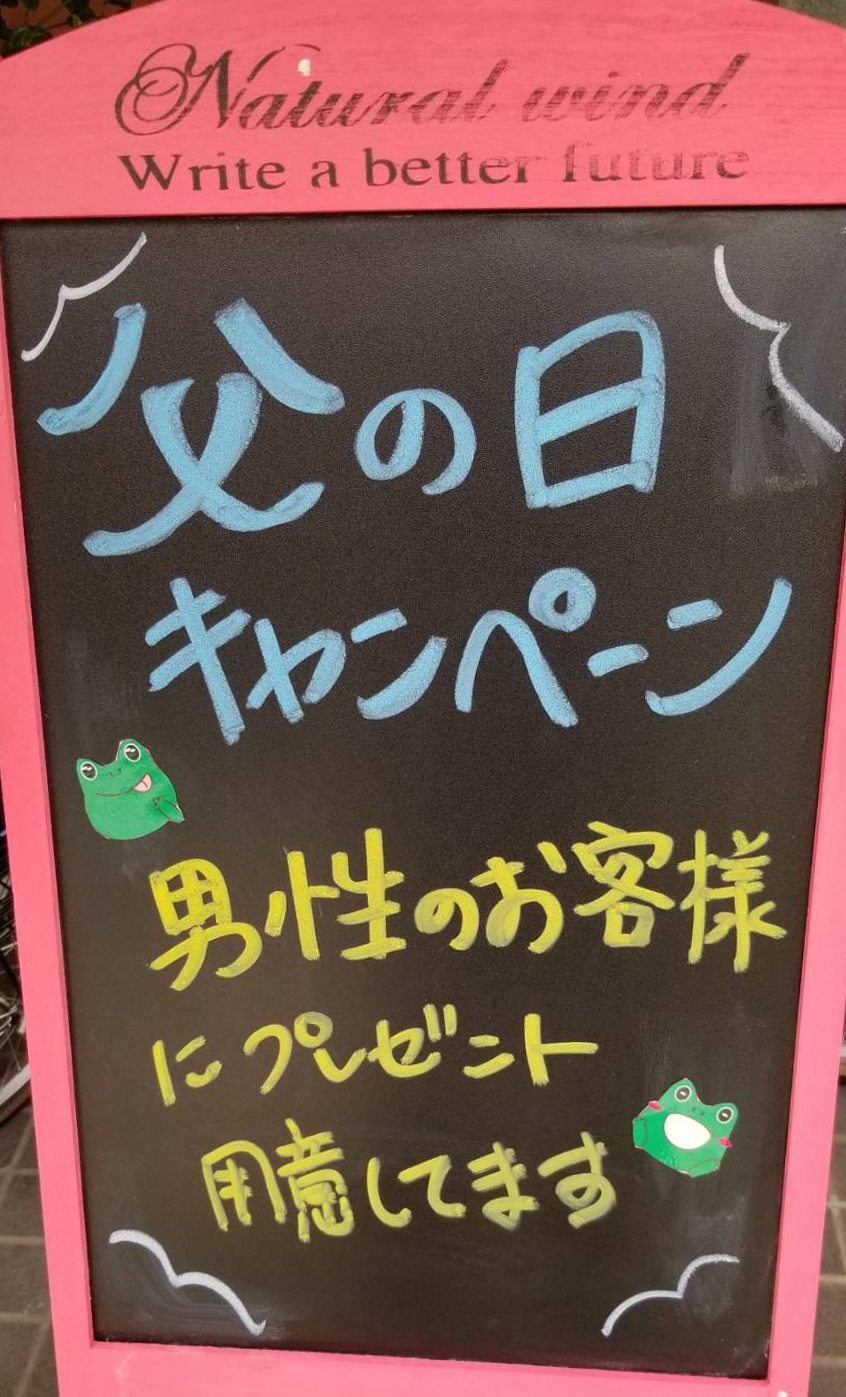 Natural wind
Write a better future
父の日
キャンペーン
男性のお客様
にプレゼント
用意してます